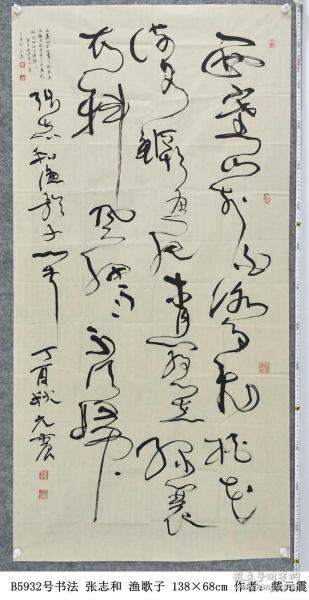 西塞山前白鷺飛桃花
流水鱖魚肥青箬笠綠蓑
衣斜風細雨不須歸
張志和漁歌子一首 丁酉秋元震
B5932号书法 张志和 渔歌子 138×68cm 作者：戴元震